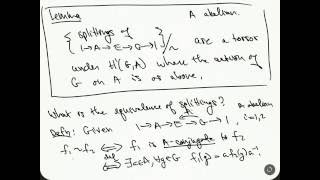 Lemma A abelian.
{ splittings of
1→A→E→G→1 }/~ are a torsor
under H¹(G,A) where the action of
G on A is as above.
What is the equivalence of splittings? A abelian
Defn: Given 1→A→E→G→1, i=1,2
f₁~f₂ ⟺ f₁ is A-conjugate to f₂
def ⟺ ∃a∈A, ∀g∈G f₁(g)=af₂(g)a⁻¹.